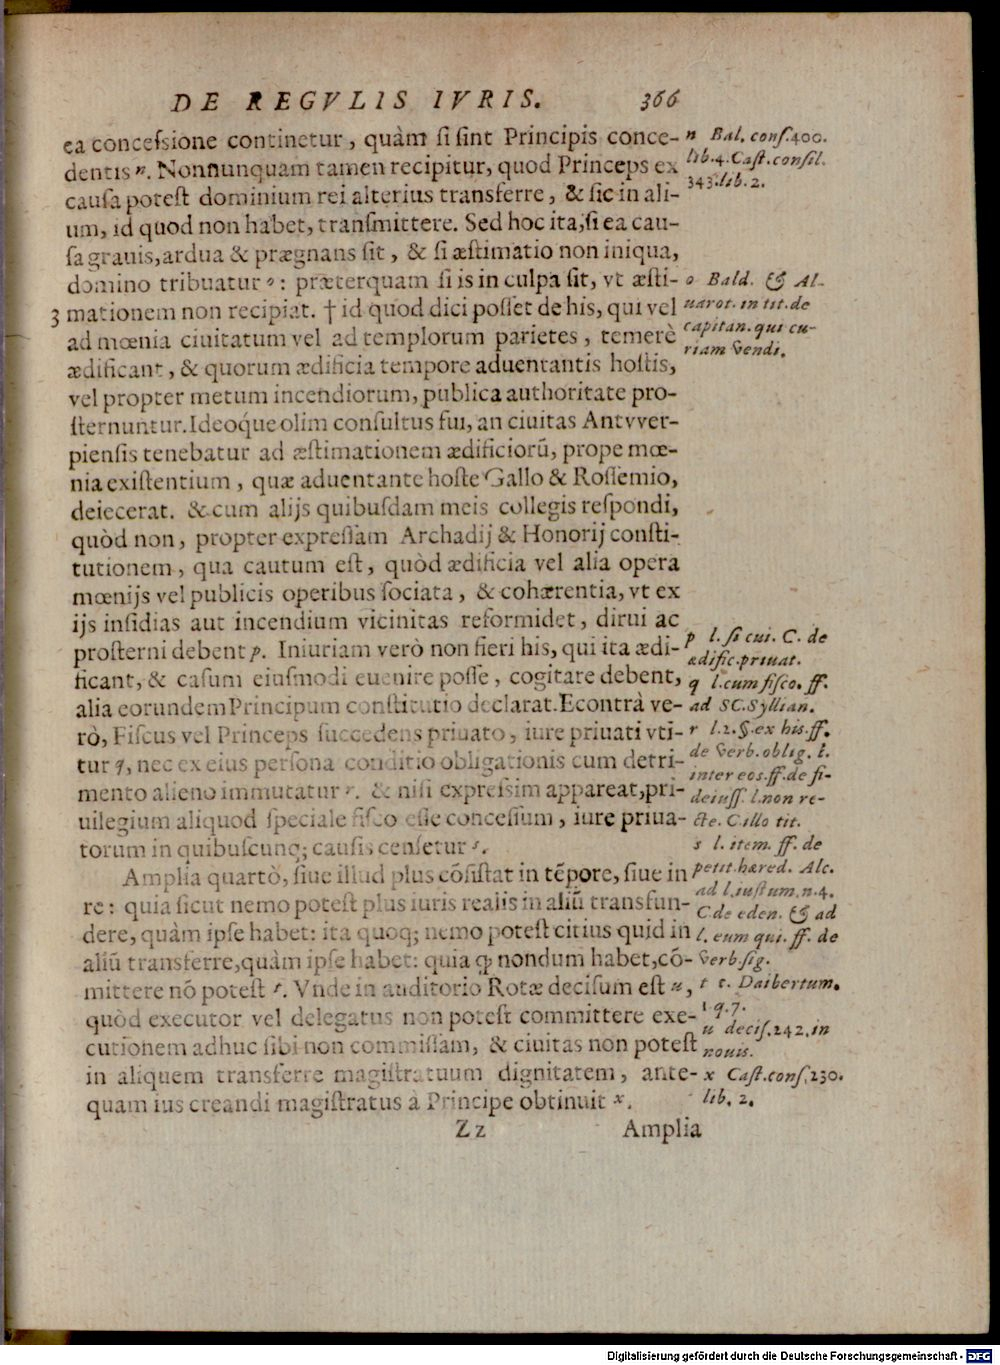 DE REGVLIS IVRIS. 366
ea conceſsione continetur, quàm ſi ſint Principis conce-
dentis n. Nonnunquam tamen recipitur, quod Princeps ex
cauſa poteſt dominium rei alterius transferre, & ſic in ali-
um, id quod non habet, tranſmittere. Sed hoc ita, ſi ea cau-
ſa grauis, ardua & prægnans ſit, & ſi æſtimatio non iniqua,
domino tribuatur o: præterquam ſi is in culpa ſit, vt æſti-
3 mationem non recipiat. † id quod dici poſſet de his, qui vel
ad mœnia ciuitatum vel ad templorum parietes, temerè
ædificant, & quorum ædificia tempore aduentantis hoſtis,
vel propter metum incendiorum, publica authoritate pro-
ſternuntur. Ideoq́ue olim conſultus fui, an ciuitas Antvver-
pienſis tenebatur ad æſtimationem ædificiorū, prope mœ-
nia exiſtentium, quæ aduentante hoſte Gallo & Roſſemio,
deiecerat. & cum alijs quibuſdam meis collegis reſpondi,
quòd non, propter expreſſam Archadij & Honorij conſti-
tutionem, qua cautum eſt, quòd ædificia vel alia opera
mœnijs vel publicis operibus ſociata, & cohærentia, vt ex
ijs inſidias aut incendium vicinitas reformidet, dirui ac
proſterni debent p. Iniuriam verò non fieri his, qui ita ædi-
ficant, & caſum eiuſmodi euenire poſſe, cogitare debent,
alia eorundem Principum conſtitutio declarat. Econtrà ve-
rò, Fiſcus vel Princeps ſuccedens priuato, iure priuati vti-
tur q, nec ex eius perſona conditio obligationis cum detri-
mento alieno immutatur r. & niſi expreſsim appareat, pri-
uilegium aliquod ſpeciale fiſco eſſe conceſſum, iure priua-
torum in quibuſcunq; cauſis cenſetur s.
Amplia quartò, ſiue illud plus cōſiſtat in tēpore, ſiue in
re: quia ſicut nemo poteſt plus iuris realis in aliū transfun-
dere, quàm ipſe habet: ita quoq; nemo poteſt citius quid in
aliū transferre, quàm ipſe habet: quia ꝙ nondum habet, cō-
mittere nō poteſt t. Vnde in auditorio Rotæ deciſum eſt u,
quòd executor vel delegatus non poteſt committere exe-
cutionem adhuc ſibi non commiſſam, & ciuitas non poteſt
in aliquem transferre magiſtratuum dignitatem, ante-
quam ius creandi magiſtratus à Principe obtinuit x.
Zz Amplia
n Bal. conſ. 400.
lib. 4. Caſt. conſil.
343. lib. 2.
o Bald. & Al-
uarot. in tit. de
capitan. qui cu-
riam vendi.
p l. ſi cui. C. de
ædific. priuat.
q l. cum fiſco. ff.
ad SC. Syllian.
r l. 2. §. ex his. ff.
de verb. oblig. l.
inter eos. ff. de fi-
deiuſſ. l. non re-
cte. C. illo tit.
s l. item. ff. de
petit. hæred. Alc.
ad l. iuſtum. n. 4.
C. de eden. & ad
l. eum qui. ff. de
verb. ſig.
t c. Daibertum.
1 q. 7.
u deciſ. 242. in
nouis.
x Caſt. conſ. 230.
lib. 2.
Digitalisierung gefördert durch die Deutsche Forschungsgemeinschaft - DFG